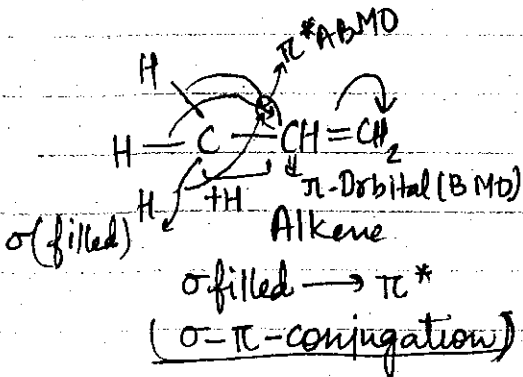 π*ABMO
H
H — C — CH = CH2
H +H π-Orbital (BMO)
σ(filled)
Alkene
σ filled → π*
(σ-π-conjugation)